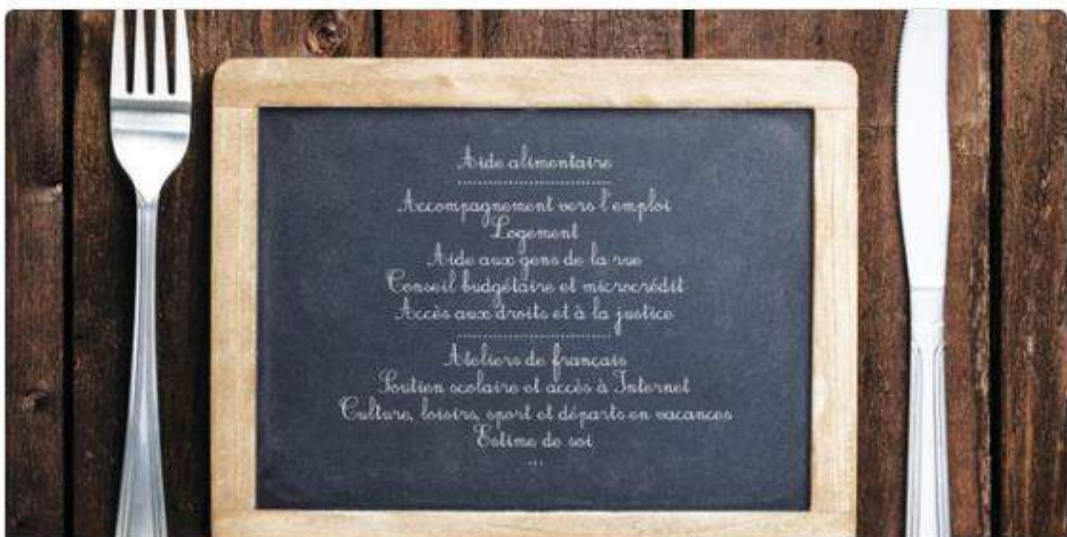 Aide alimentaire
Accompagnement vers l'emploi
Logement
Aide aux gens de la rue
Conseil budgétaire et microcrédit
Accès aux droits et à la justice
Ateliers de français
Soutien scolaire et accès à Internet
Culture, loisirs, sport et départs en vacances
Estime de soi
...